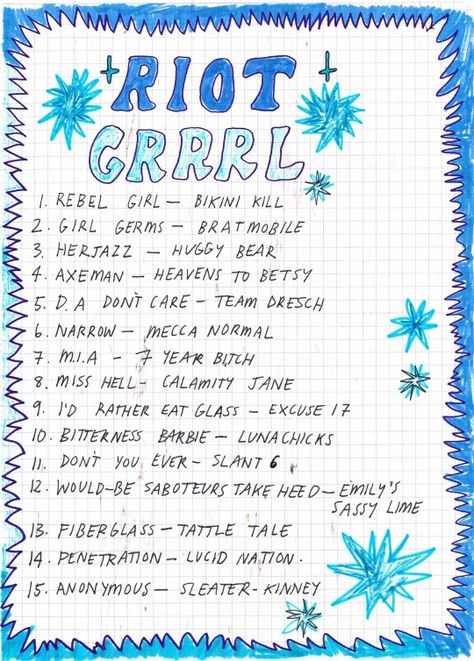 RIOT
GRRRL
1. REBEL GIRL — BIKINI KILL
2. GIRL GERMS — BRATMOBILE
3. HERJAZZ — HUGGY BEAR
4. AXEMAN — HEAVENS TO BETSY
5. D.A DON'T CARE — TEAM DRESCH
6. NARROW — MECCA NORMAL
7. M.I.A - 7 YEAR BITCH
8. MISS HELL - CALAMITY JANE
9. I'D RATHER EAT GLASS — EXCUSE 17
10. BITTERNESS BARBIE — LUNACHICKS
11. DON'T YOU EVER — SLANT 6
12. WOULD-BE SABOTEURS TAKE HEED — EMILY'S
SASSY LIME
13. FIBERGLASS — TATTLE TALE
14. PENETRATION — LUCID NATION.
15. ANONYMOUS — SLEATER-KINNEY